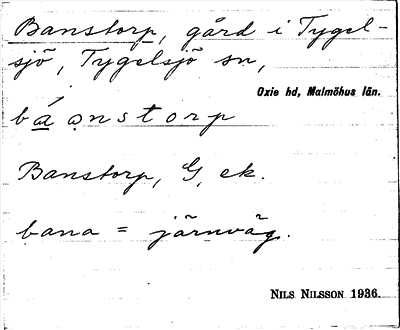 Banstorp, gård i Tygel-
sjö, Tygelsjö sn,
Oxie hd, Malmöhus län.
bá̱ ạnstorp
Banstorp, G, ek.
bana = järnväg.
NILS NILSSON 1936.